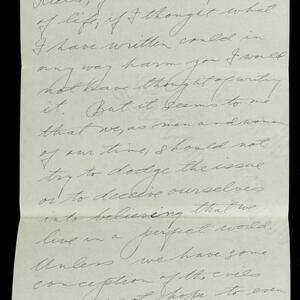 of life, if I thought what
I have written could in
any way harm you I would
not have thought of writing
it. But it seems to me
that we, as man and woman
of our time, should not
try to dodge the issue
or to deceive ourselves
into believing that we
live in a perfect world.
Unless we have some
conception of the evils
not hope to even